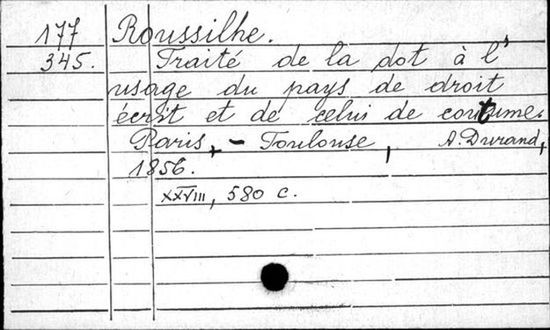 177 Roussilhe.
345. Traité de la dot à l'
usage du pays de droit
écrit et de celui de coutume.
Paris, - Toulouse, A. Durand,
1856.
XXVIII, 580 c.